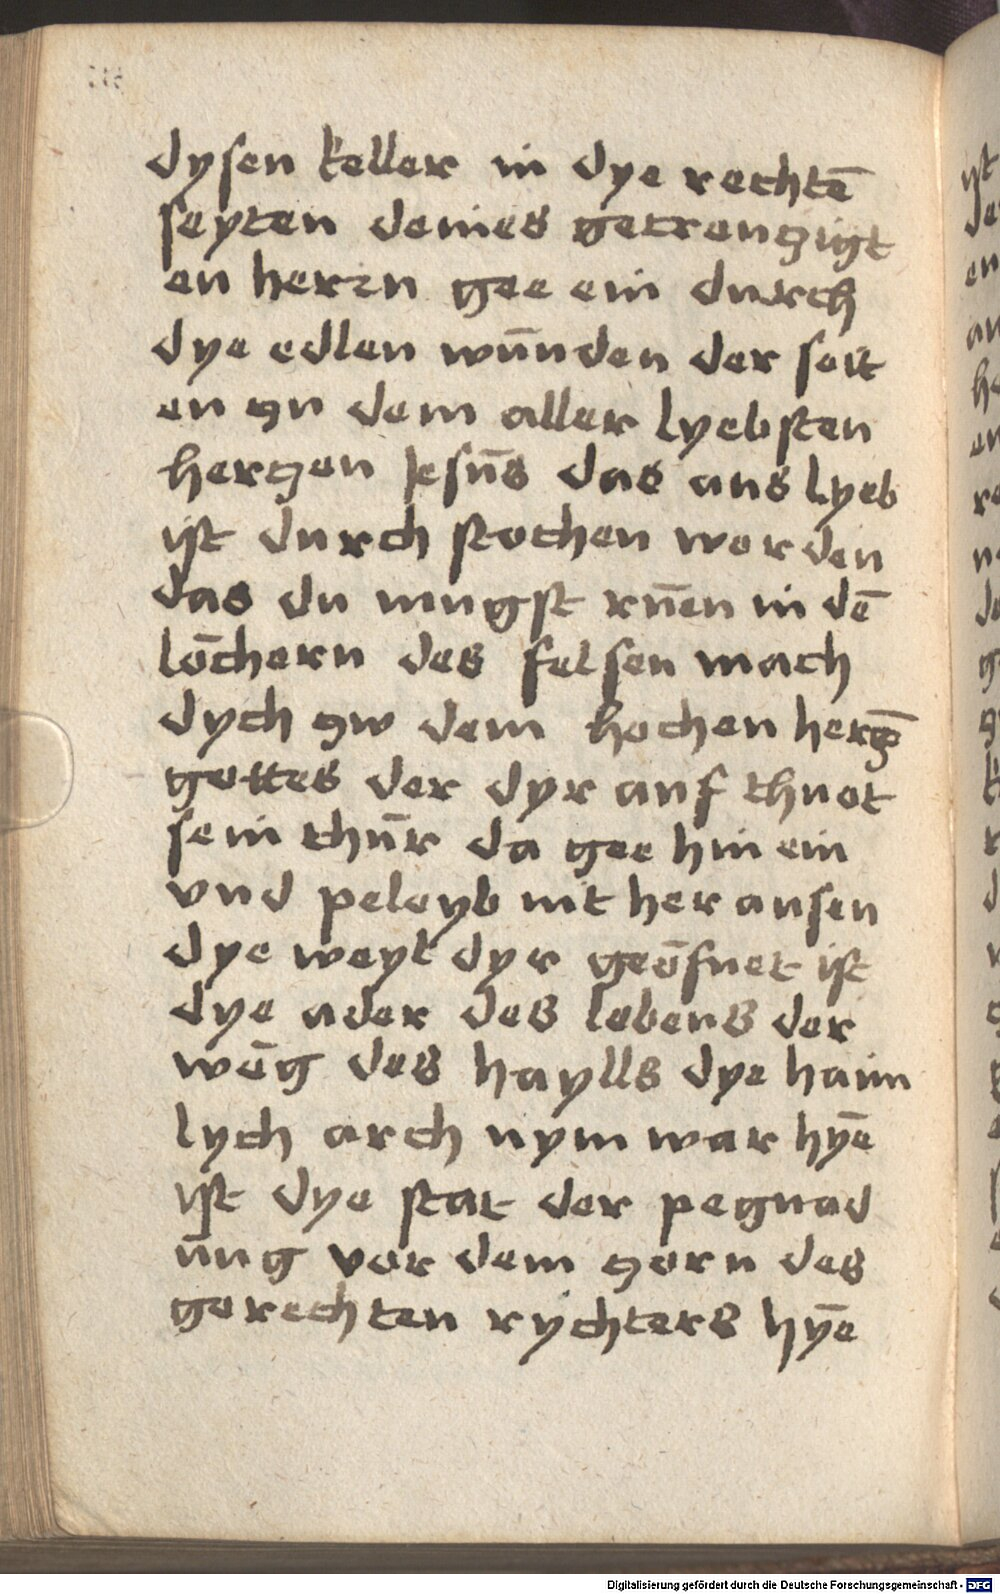 dysen keller in dye rechtē
seyten deines gecrenczigt
en herrn gee ein durch
dye edlen wūnden der seit
en zu dem aller lyebsten
herczen Jesūs das aus lyeb
ist durch stochen worden
das du mugst rūen in dē
lōchern des felsen mach
dych zw dem hochen hercz̄
gottes der dyr auf thuot
sein thūr da gee hin ein
vnd peleyb nit her ausen
dye weyl dyr geōfnet ist
dye ader des lebens der
wēg des haylls dye haim
lych arch nym war hȳe
ist dye stat der pegnad
ūng vor dem zorn des
gerechten rychters hȳe
Digitalisierung gefördert durch die Deutsche Forschungsgemeinschaft - DFG